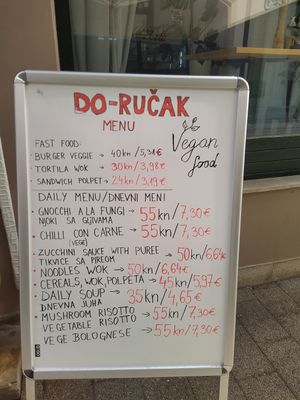 DO-RUČAK
MENU
Vegan
food
FAST FOOD:
BURGER VEGGIE - 40kn/5,31€
TORTILA WOK - 30kn/3,98€
SANDWICH POLPET - 24kn/3,19€
DAILY MENU/DNEVNI MENI
GNOCCHI A LA FUNGI - 55kn/7,30€
NJOKI SA GLJIVAMA
CHILLI CON CARNE - 55kn/7,30€
(VEGE)
ZUCCHINI SAUCE WITH PUREE
TIKVICE SA PIREOM 50kn/6,64€
NOODLES WOK - 50kn/6,64€
CEREALS, WOK, POLPETA - 45kn/5,97€
DAILY SOUP - 35kn/4,65€
DNEVNA JUHA
MUSHROOM RISOTTO - 55kn/7,30€
VEGETABLE RISOTTO - 55kn/7,30€
VEGE BOLOGNESE - 55kn/7,30€